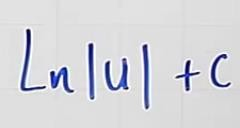 Ln|u| + c